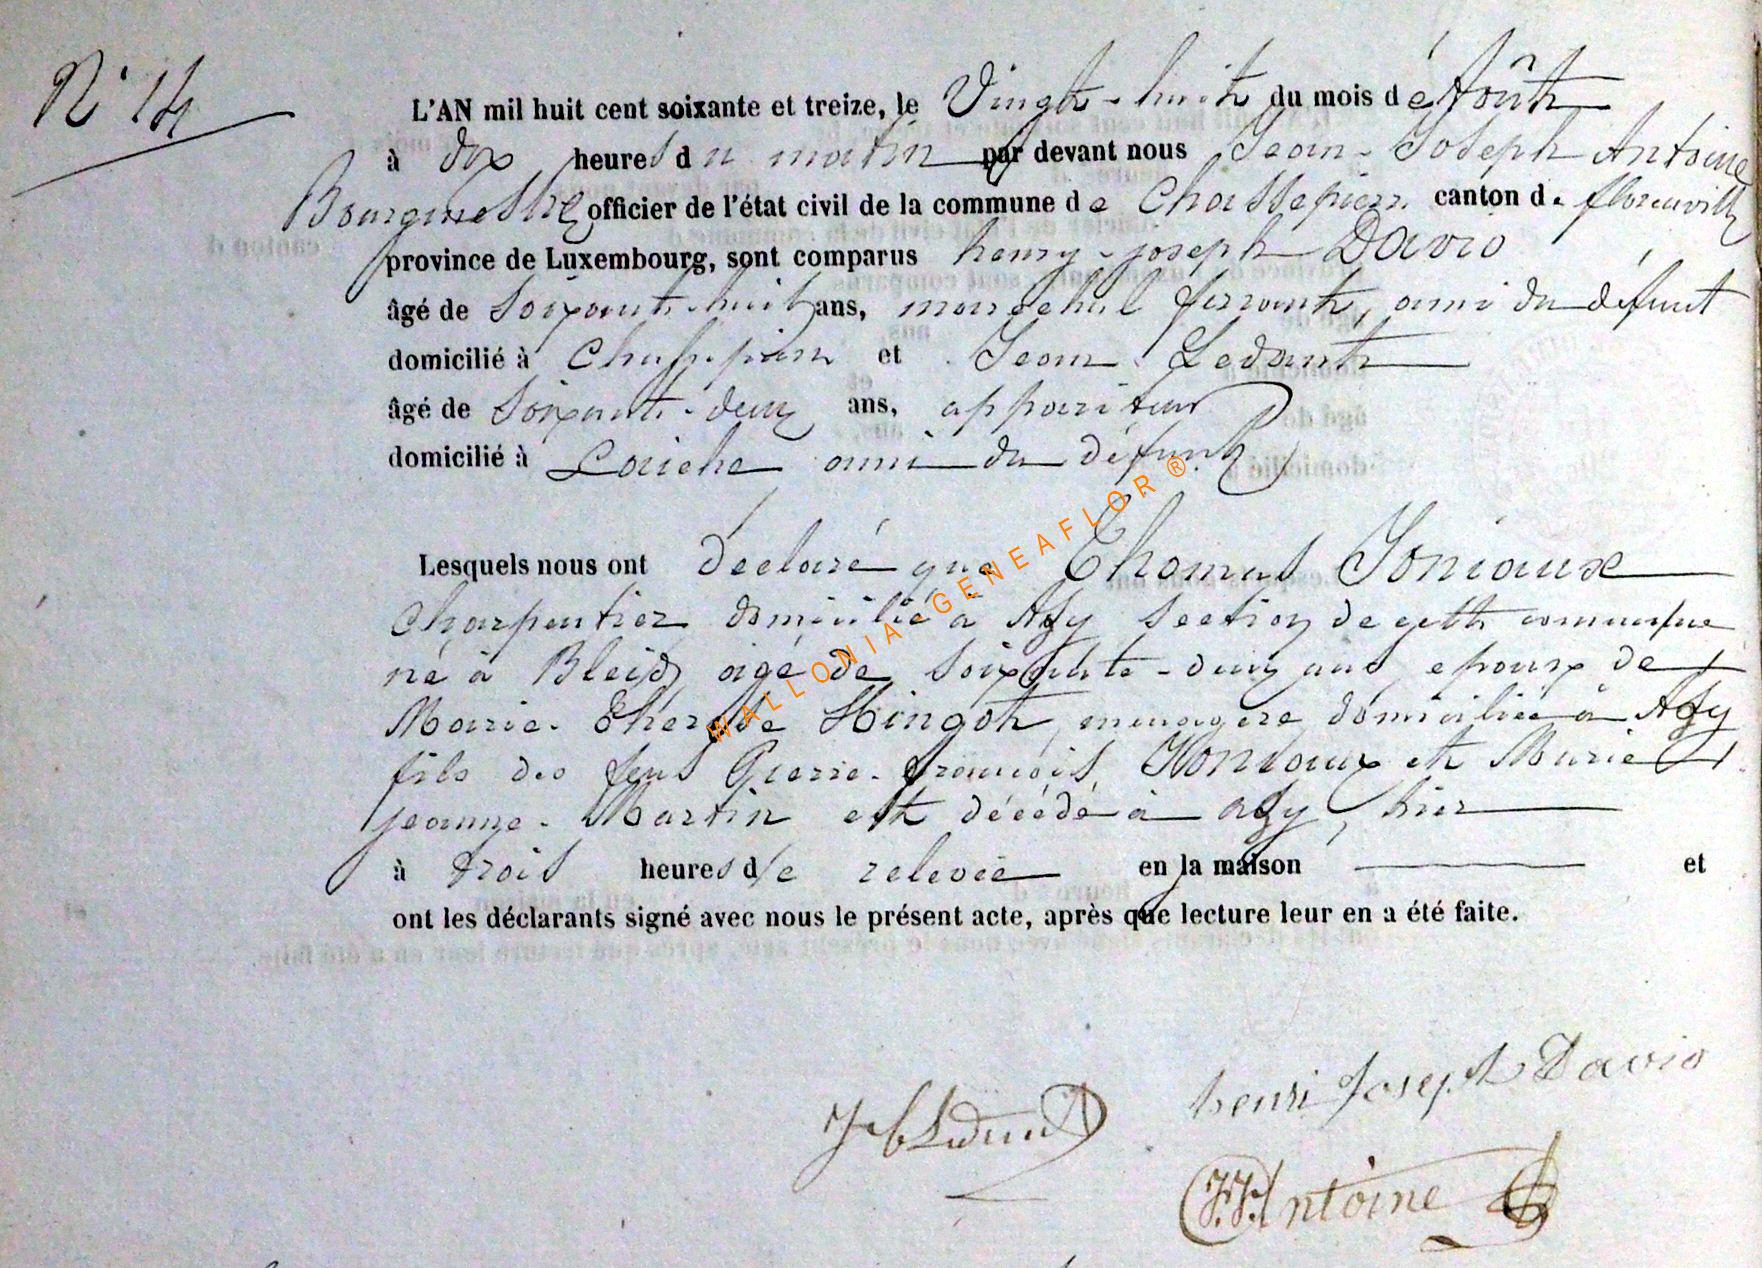 N° 14
L'AN mil huit cent soixante et treize, le Vingt-huit du mois d'Août
à dix heures du matin par devant nous Jean-Joseph Antoine
Bourgmestre officier de l'état civil de la commune de Chassepierre canton de florenville
province de Luxembourg, sont comparus henry-joseph David
âgé de Soixante-huit ans, maréchal ferrant, ami du défunt
domicilié à Chassepierre et Jean Ledant
âgé de Soixante-deux ans, appariteur
domicilié à Laiche ami du défunt
Lesquels nous ont déclaré que Thomas Joniaux
Charpentier domicilié à Azy Section de cette commune
né à Bleid, agé de soixante-deux ans, epoux de
Marie-Therese Hingot, menagère domiciliée à Azy
fils des feus Pierre-françois Joniaux et Marie
jeanne-Martin est décédé à Azy, hier
à trois heures de relevée en la maison et
ont les déclarants signé avec nous le présent acte, après que lecture leur en a été faite.
henri Joseph David
J. J. Antoine
WALLONIA GENEAFLOR ®